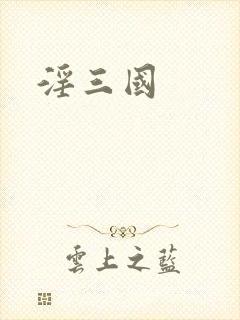 淫三國
雲上之藍